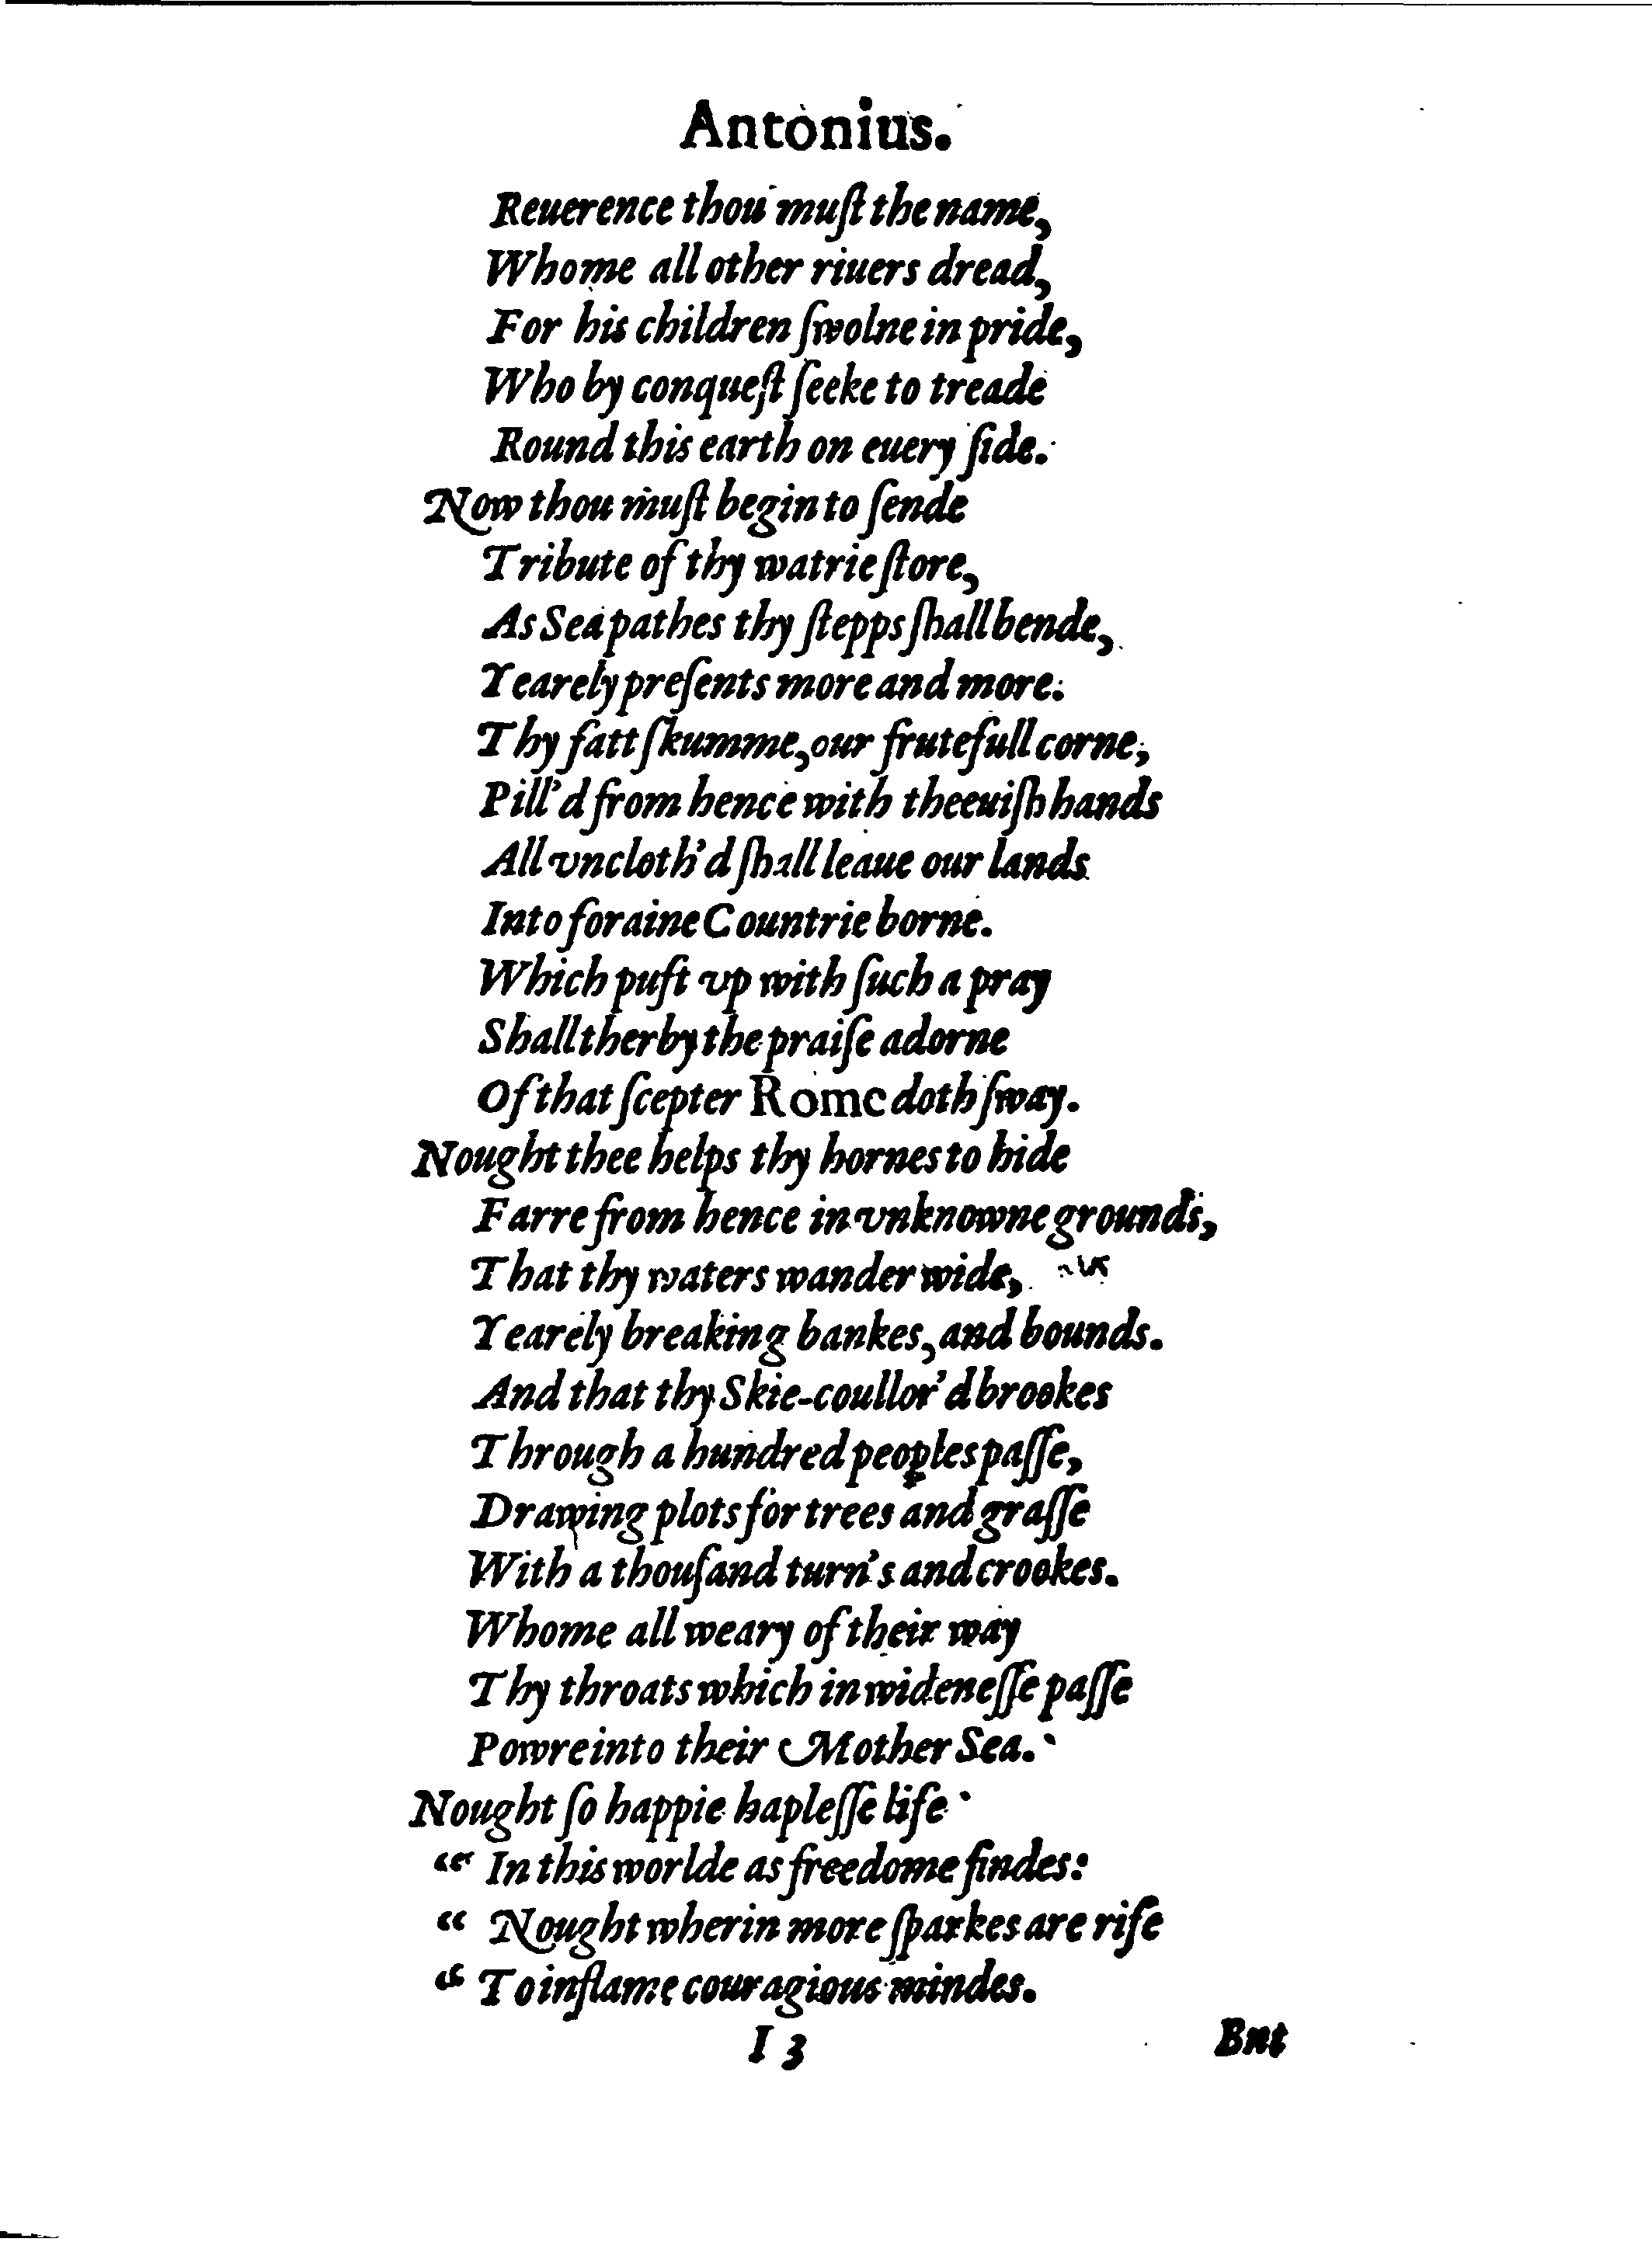 Antonius.
Reuerence thou muſt the name,
Whome all other riuers dread,
For his children ſwolne in pride,
Who by conqueſt ſeeke to treade
Round this earth on euery ſide.
Now thou muſt begin to ſende
Tribute of thy watrie ſtore,
As Sea pathes thy ſtepps ſhall bende,
Yearely preſents more and more.
Thy fatt ſkumme, our frutefull corne,
Pill'd from hence with theeuiſh hands
All vncloth'd ſhall leaue our lands
Into foraine Countrie borne.
Which puft vp with ſuch a pray
Shall therby the praiſe adorne
Of that ſcepter Rome doth ſway.
Nought thee helps thy hornes to hide
Farre from hence in vnknowne grounds,
That thy waters wander wide,
Yearely breaking bankes, and bounds.
And that thy Skie-coullor'd brookes
Through a hundred peoples paſſe,
Drawing plots for trees and graſſe
With a thouſand turn's and crookes.
Whome all weary of their way
Thy throats which in wideneſſe paſſe
Powre into their Mother Sea.
Nought ſo happie hapleſſe life
“ In this worlde as freedome findes:
“ Nought wherin more ſparkes are rife
“ To inflame couragious mindes.
I 3 Bnt